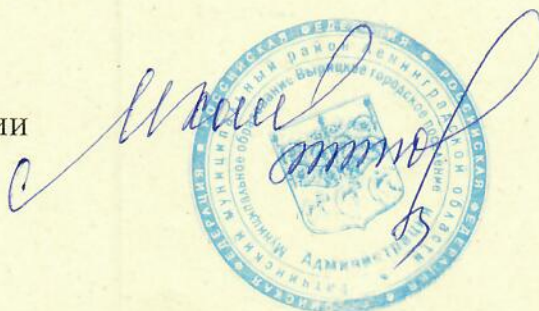 ии
РОССИЙСКАЯ ФЕДЕРАЦИЯ * РОССИЙСКАЯ ФЕДЕРАЦИЯ * РОССИЙСКАЯ ФЕДЕРАЦИЯ *
Гатчинский муниципальный район Ленинградской области
Муниципальное образование Вырицкое городское поселение
Администрация